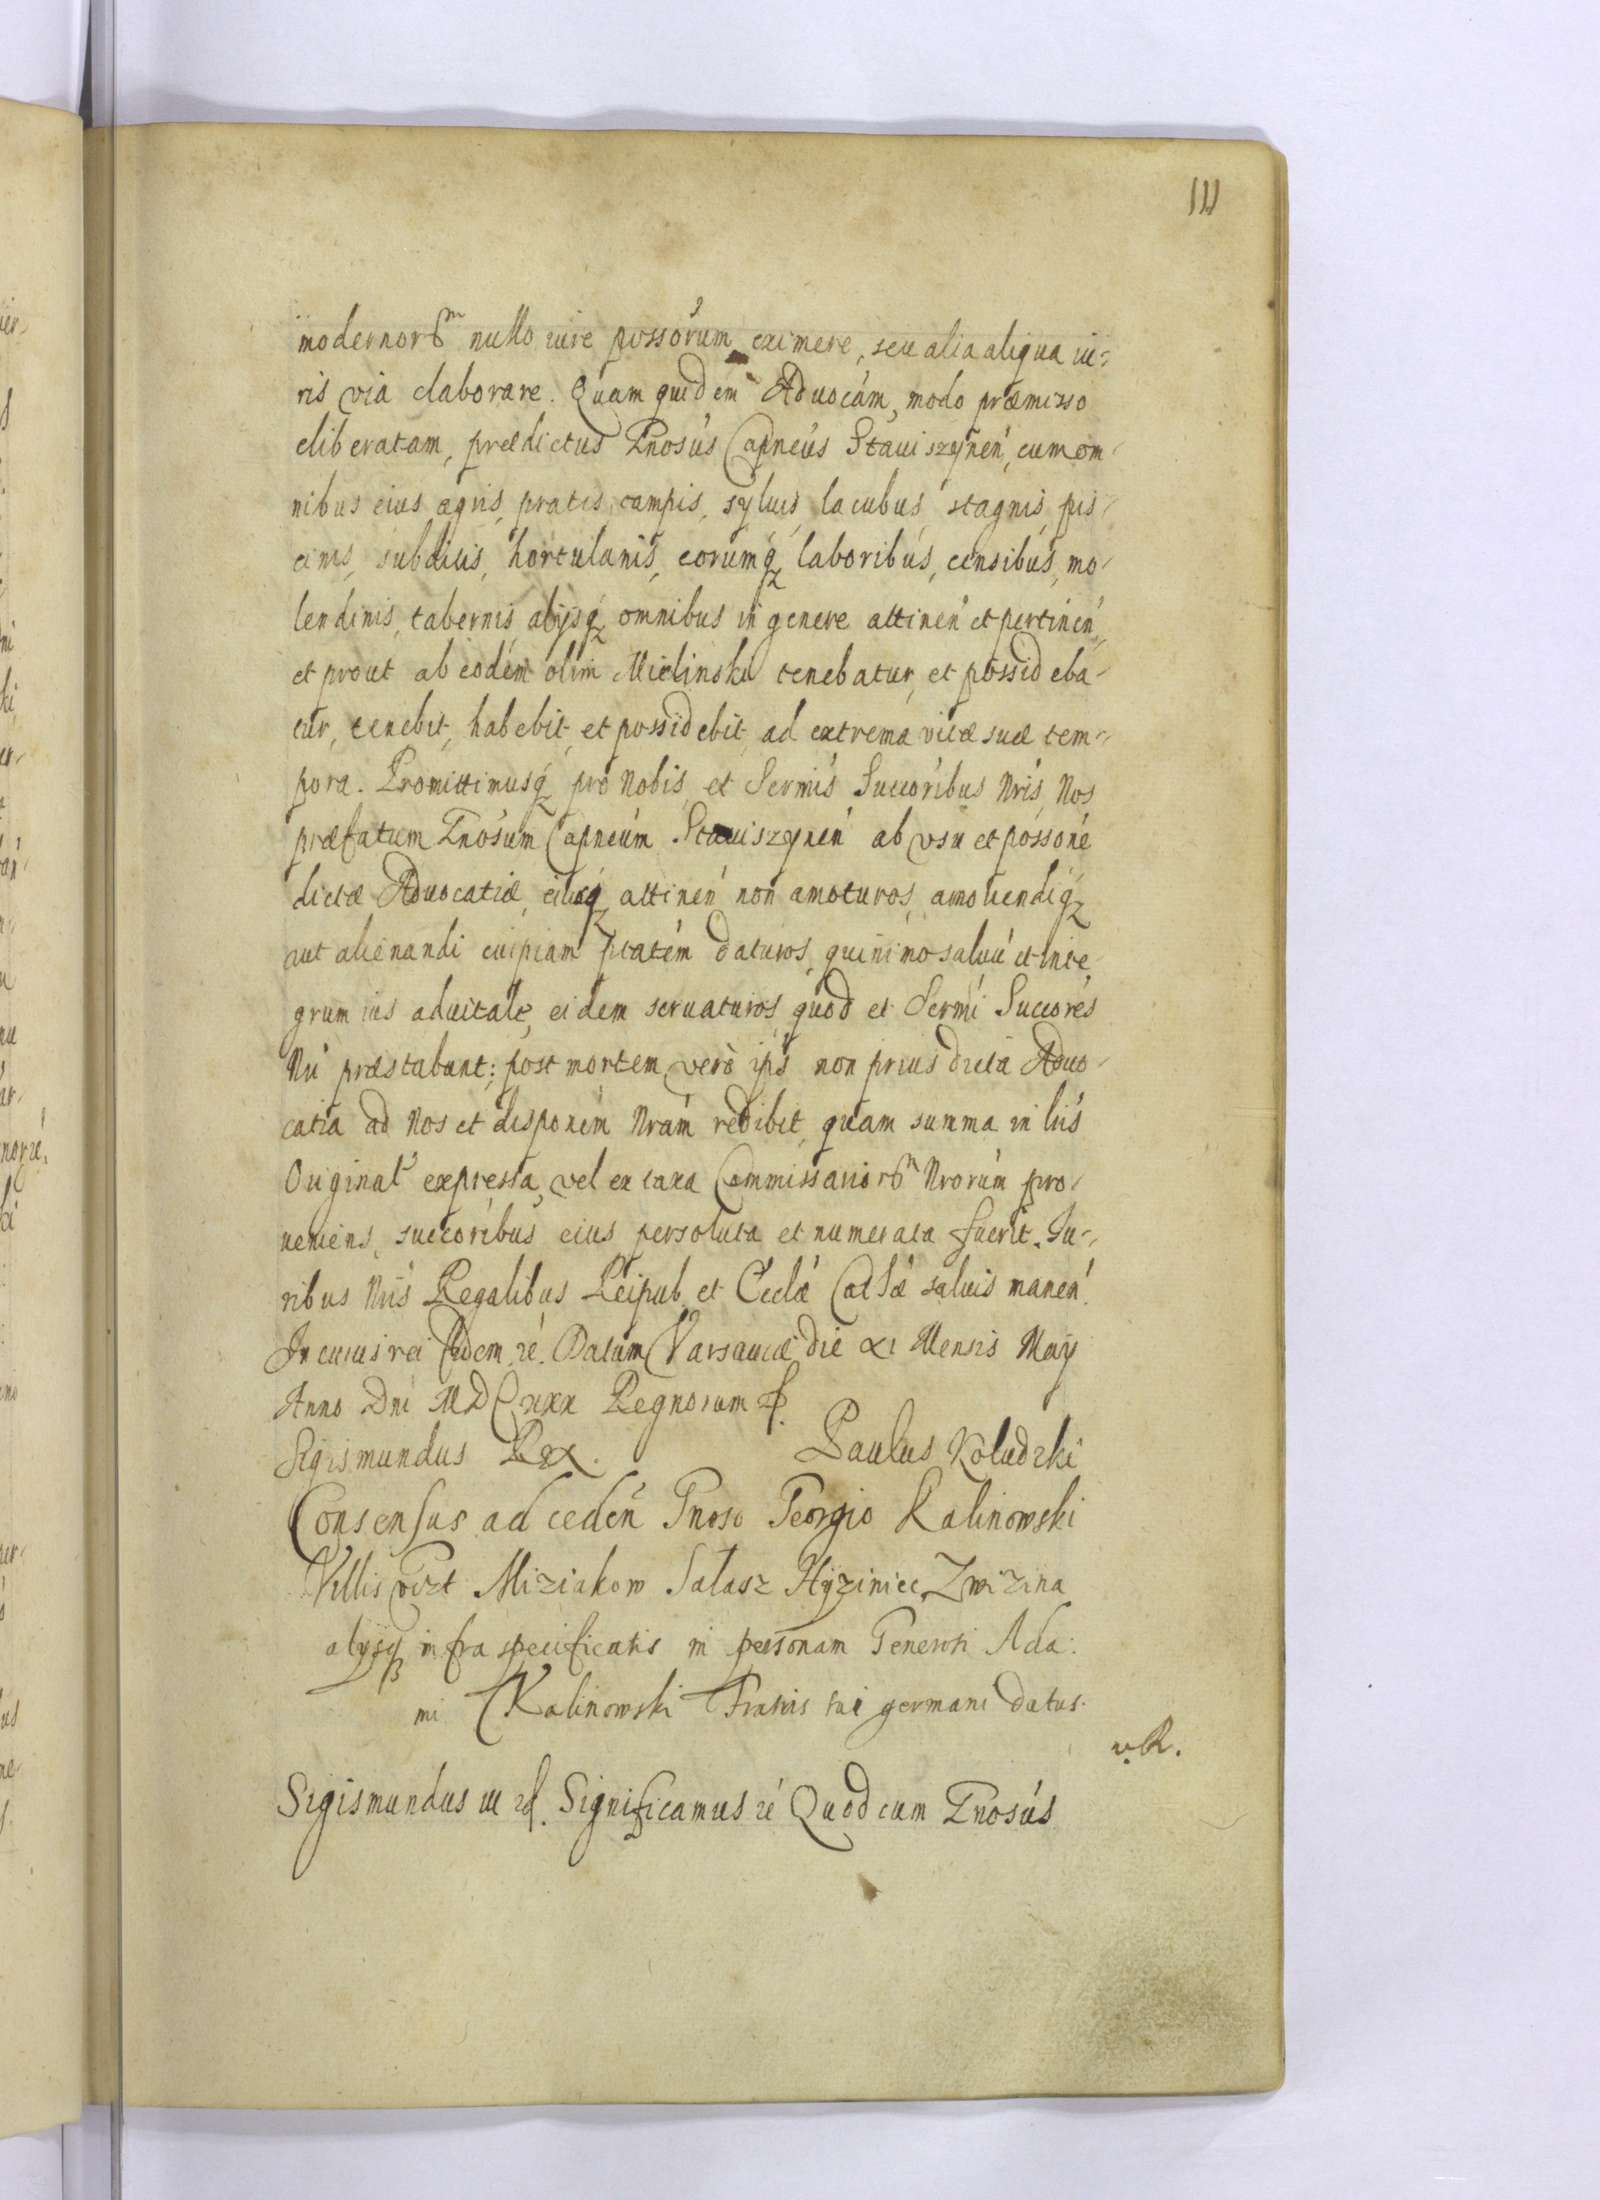 111
modernorum nullo iure possorum eximere, seu alia aliqua iu-
ris via elaborare. Quam quidem Advocam, modo præmisso
eliberatam, prædictus Gnosus Capneus Stauiszynen, cum om-
nibus eius agris, pratis, campis, syluis, lacubus, stagnis, pis-
cinis, subditis, hortulanis, eorumq, laboribus, censibus, mo-
lendinis, tabernis, alijsq, omnibus in genere attinen et pertinen,
et prout ab eodem olim Mielinski tenebatur, et possideba-
tur, tenebit, habebit, et possidebit, ad extrema vitæ suæ tem-
pora. Promittimusq, pro Nobis, et Sermis Succoribus Nris, Nos
præfatum Gnosum Capneum Stauiszynen ab vsu et possone
dictæ Advocatiæ, eiusq, attinen non amoturos, amouendiq,
aut alienandi cuipiam ptatem daturos, quinimo saluu et inte-
grum ius aduitale, eidem seruaturos, quod et Sermi Succores
Nri præstabunt; post mortem verò ipś non prius dicta Aduo-
catia ad Nos et disponem Nram redibit, quam summa in lris
Original expressa, vel ex taxa Commissariorum Nrorum pro-
ueniens, succoribus eius persoluta et numerata fuerit. Iu-
ribus Nris Regalibus Reipub. et Ecclæ Catłæ saluis manen.
In cuius rei fidem ꝛć. Datum Varsauiæ die XI Mensis Maij
Anno Dni MDCXXX Regnorum ꝛ.
Sigismundus Rex. Paulus Koludzki
Consensus ad ceden Gnoso Georgio Kalinowski
Villis vizt Miziakow Salasz Hyziniec Zwizina
alijsq infra specificatis in personam Generosi Ada:
mi Kalinowski Fratris sui germani datus.
v. R.
Sigismundus III ꝛ. Significamus ꝛć Quod cum Gnosus